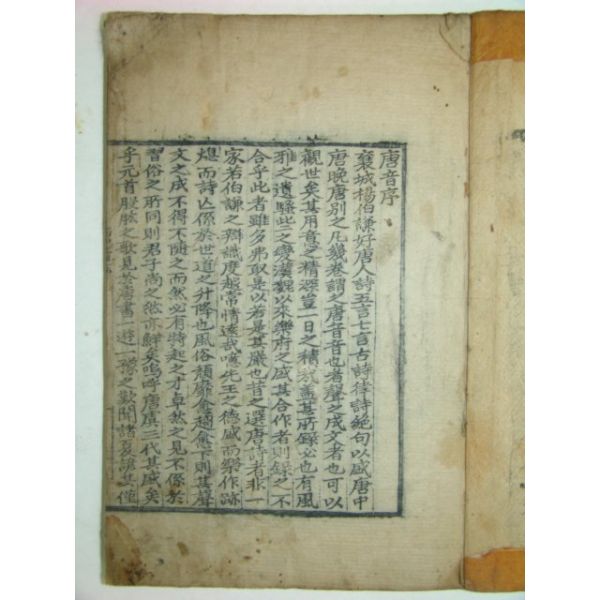 唐音序
襄城楊伯謙好唐人詩五言七言古詩律詩絶句以盛唐中
唐晩唐別之凡幾卷謂之唐音音也者聲之成文者也可以
觀世矣其用意之精深豈一日之積哉盖其所録必也有風
雅之遺騷些之變漢魏以來樂府之盛其合作者則録之不
合乎此者雖多弗取是以若是其嚴也昔之選唐詩者非一
家若伯謙之辯識度越常情遠哉嗟先王之德盛而樂作跡
熄而詩亡係於世道之升降也風俗頹靡愈趨愈下則其聲
文之成不得不隨之而然必有特起之才卓然之見不係於
習俗之所同則君子尚之然亦鮮矣嗚呼唐虞三代其盛矣
乎元首股肱之歌見於虞書一遊一豫之歎聞諸夏諺其他